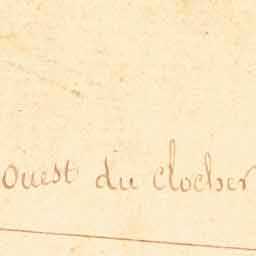 ouest du clocher